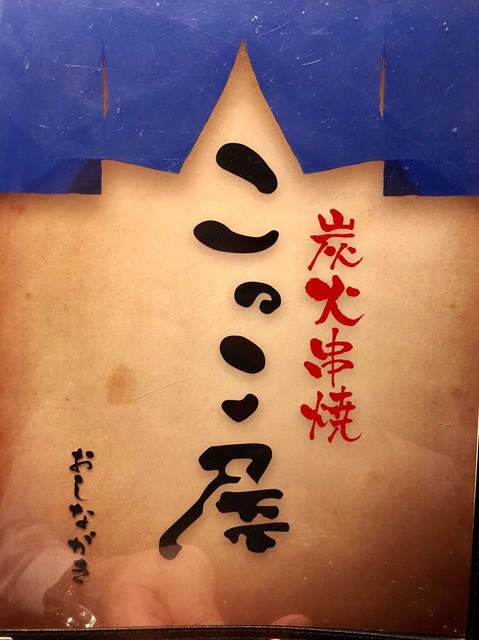 炭火串焼
このこ屋
おしながき